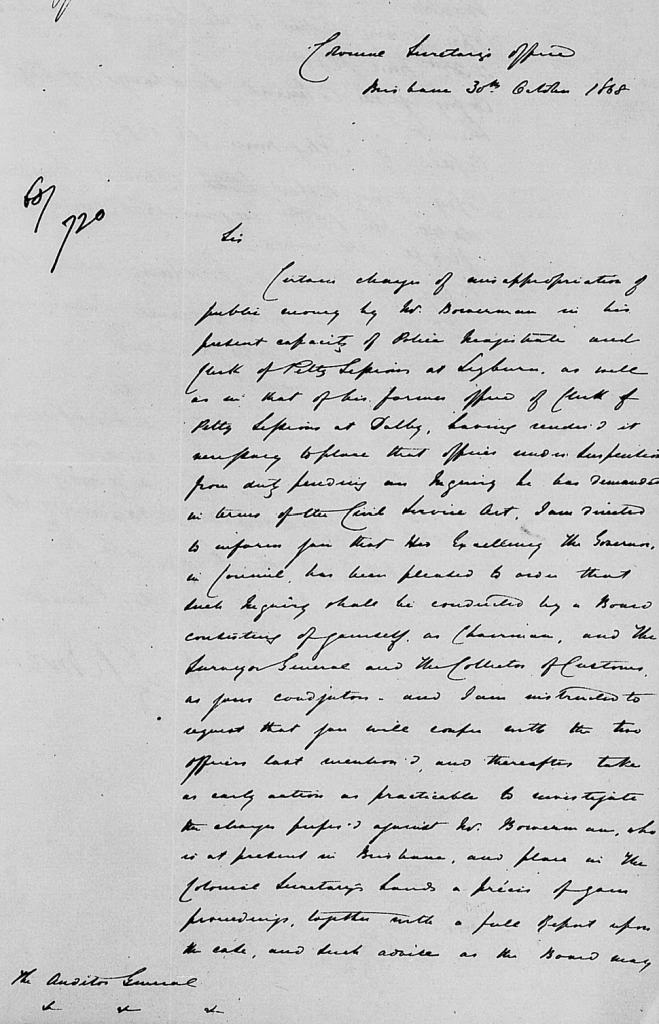 Colonial Secretary's Office
Brisbane 30th October 1868
68/
720
Sir
Certain charges of misappropriation of
public money by Mr. Bowerman in his
present capacity of Police Magistrate and
Clerk of Petty Sessions at Leyburn, as well
as in that of his former office of Clerk of
Petty Sessions at Dalby, having render'd it
necessary to place that officer under suspension
from duty pending an Inquiry he has demanded
in terms of the Civil Service Act, I am directed
to inform you that His Excellency the Governor,
in Council, has been pleased to order that
such Inquiry shall be conducted by a Board
consisting of yourself, as Chairman, and the
Surveyor General and the Collector of Customs,
as your coadjutors - and I am instructed to
request that you will confer with the two
officers last mention'd, and thereafter take
as early action as practicable to investigate
the charges prefer'd against Mr. Bowerman, who
is at present in Brisbane, and place in the
Colonial Secretary's hands a précis of your
proceedings, together with a full Report upon
the case, and such advice as the Board may
The Auditor General